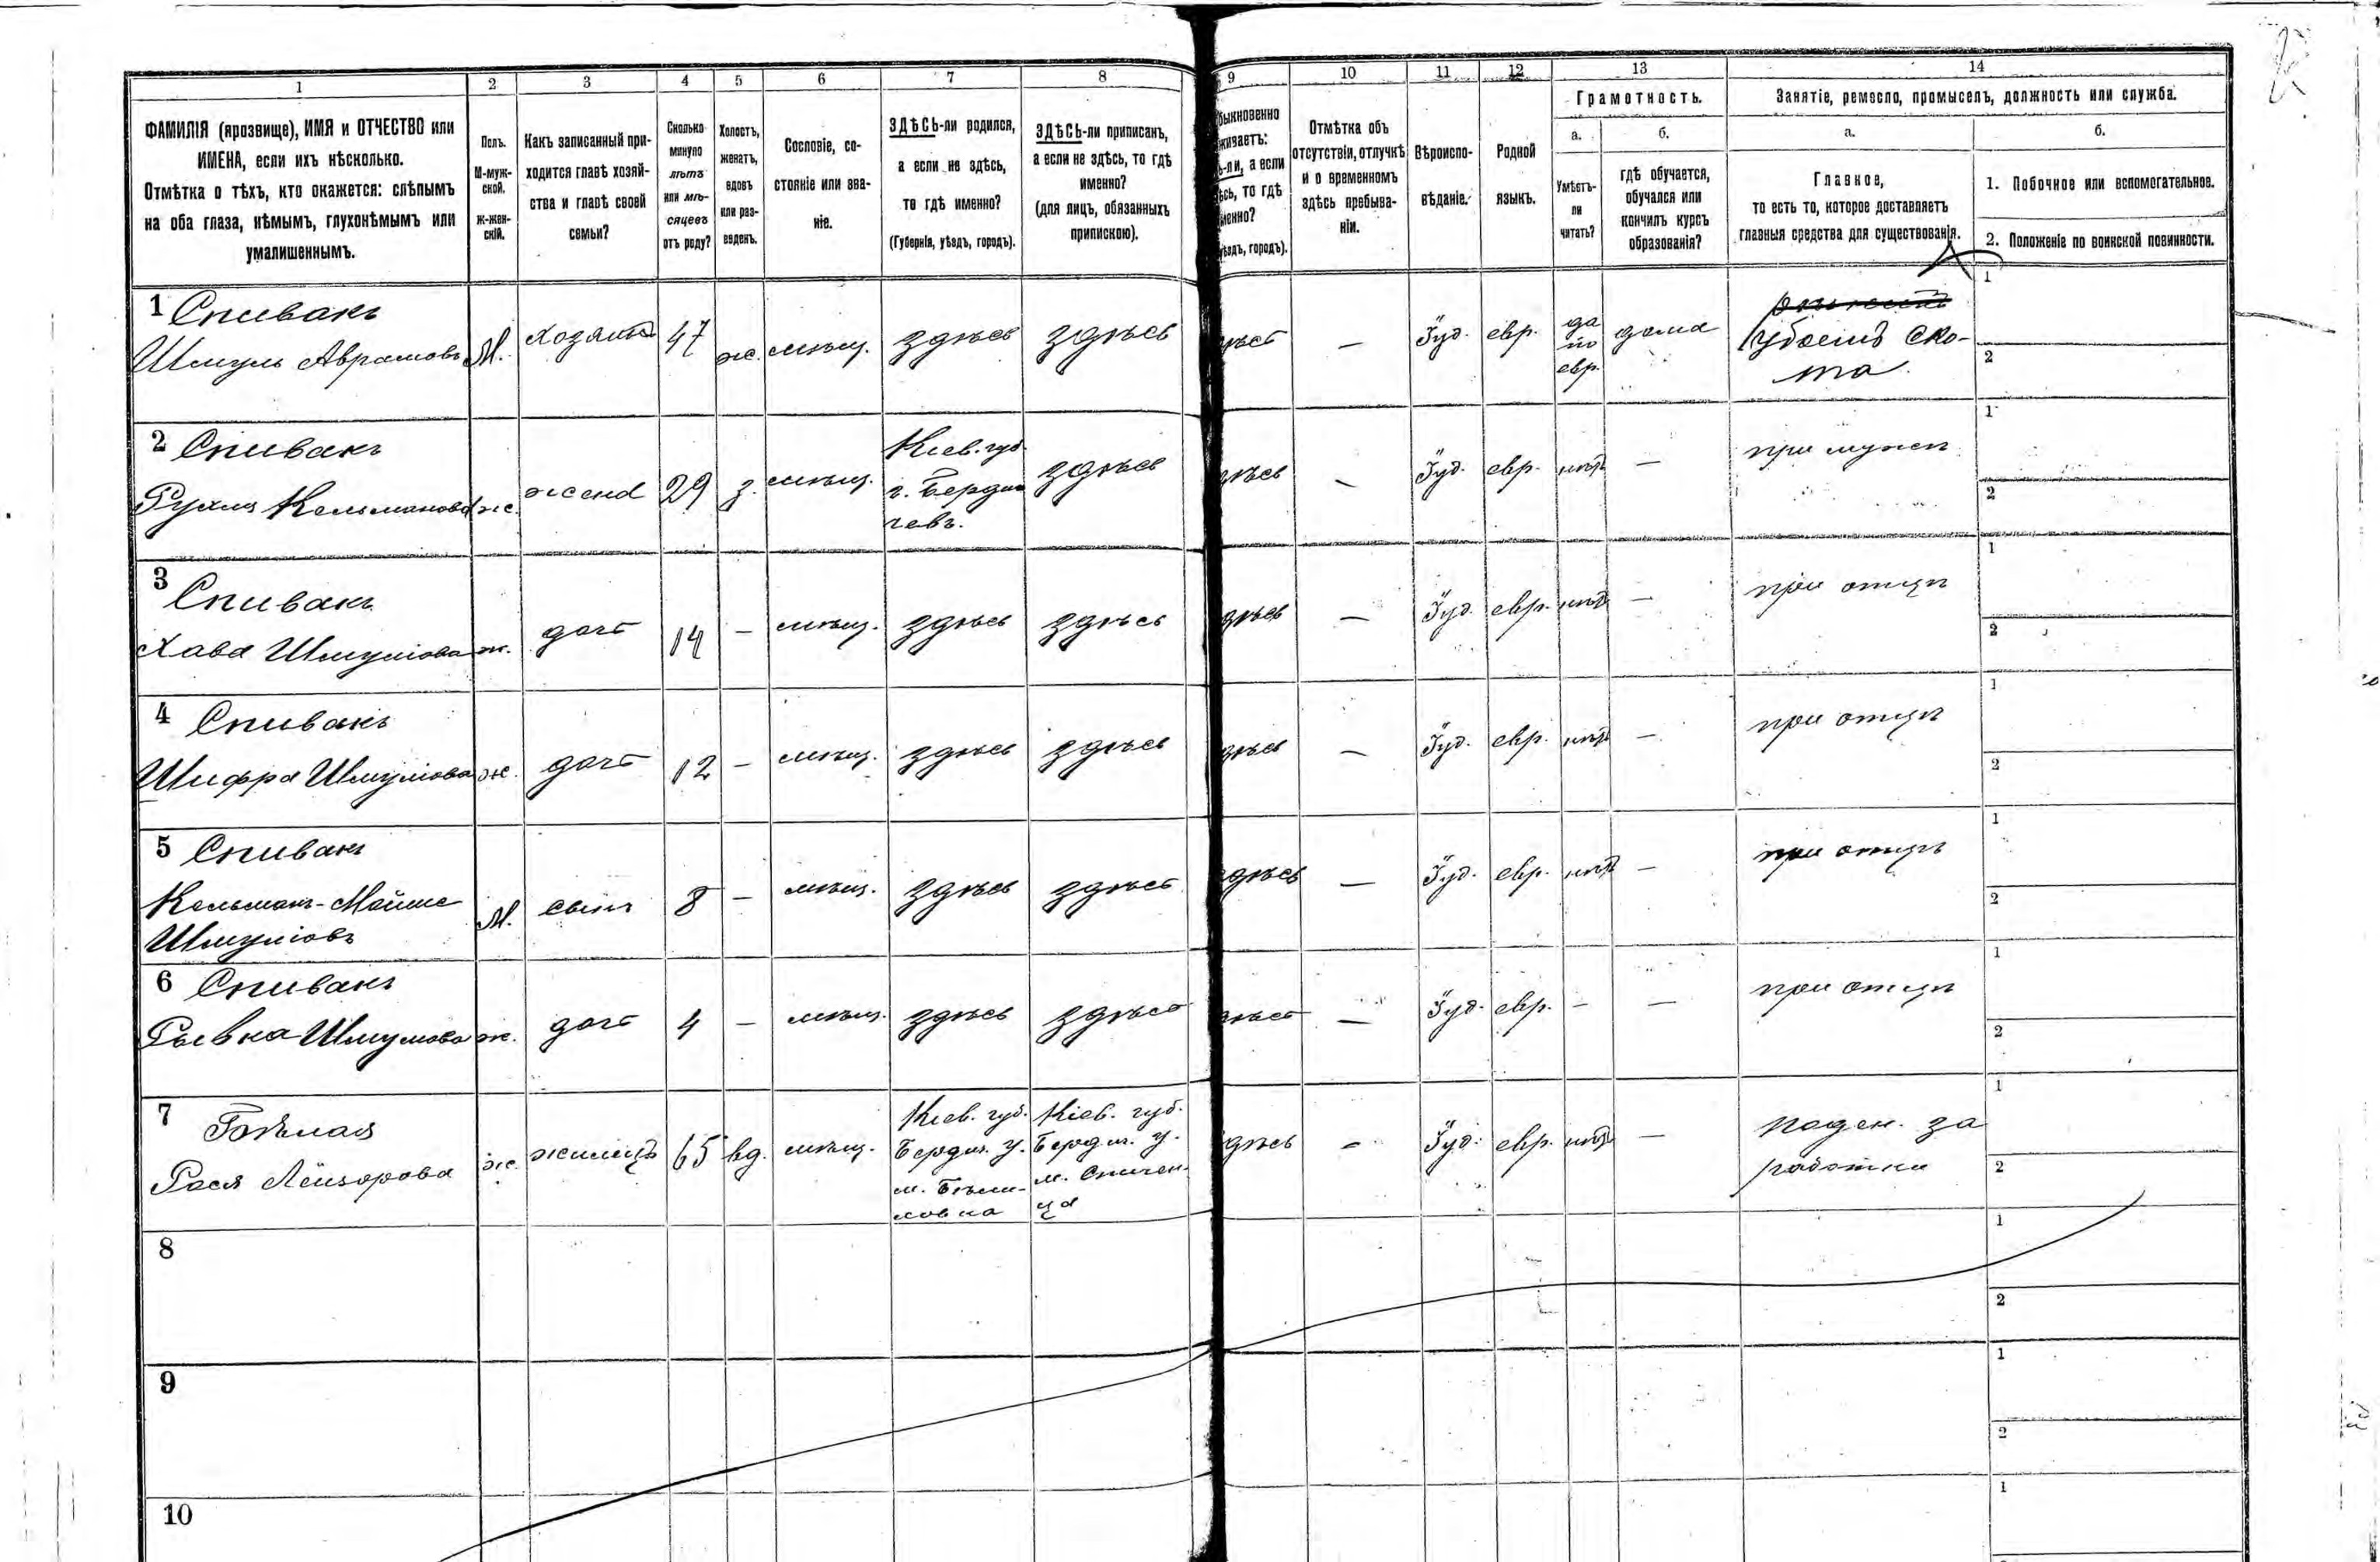 1 2 3 4 5 6 7 8 9 10 11 12 13 14
ФАМИЛІЯ (прозвище), ИМЯ и ОТЧЕСТВО или
ИМЕНА, если ихъ нѣсколько.
Отмѣтка о тѣхъ, кто окажется: слѣпымъ
на оба глаза, нѣмымъ, глухонѣмымъ или
умалишеннымъ.
Полъ.
М-муж-
ской.
ж-жен-
скій.
Какъ записанный при-
ходится главѣ хозяй-
ства и главѣ своей
семьи?
Сколько
минуло
лѣтъ
или мѣ-
сяцевъ
отъ роду?
Холостъ,
женатъ,
вдовъ
или раз-
веденъ.
Сословіе, со-
стояніе или зва-
ніе.
ЗДѢСЬ-ли родился,
а если не здѣсь,
то гдѣ именно?
(Губернія, уѣздъ, городъ).
ЗДѢСЬ-ли приписанъ,
а если не здѣсь, то гдѣ
именно?
(для лицъ, обязанныхъ
припискою).
быкновенно
живаетъ:
ь-ли, а если
ѣсь, то гдѣ
менно?
уѣздъ, городъ).
Отмѣтка объ
отсутствіи, отлучкѣ
и о временномъ
здѣсь пребыва-
ніи.
Вѣроиспо-
вѣданіе.
Родной
языкъ.
Грамотность.
а.
Умѣетъ-
ли
читать?
б.
гдѣ обучается,
обучался или
кончилъ курсъ
образованія?
Занятіе, ремесло, промыселъ, должность или служба.
а.
Главное,
то есть то, которое доставляетъ
главныя средства для существованія.
б.
1. Побочное или вспомогательное.
2. Положеніе по воинской повинности.
1 Спивакъ
Шмуль Аврамовъ М. хозяинъ 47 ж. мѣщ. здѣсь здѣсь ѣсь — Іуд. евр. да по евр. дома
убоемъ ско-
та.
1
2
2 Спивакъ
Рухля Кельманова ж. жена 29 з. мѣщ.
Кіев. губ.
г. Берди
чевъ.
здѣсь дѣсь — Іуд. евр. нѣтъ — при мужѣ
1
2
3 Спивакъ
Хава Шмулiова ж. дочь 14 — мѣщ. здѣсь здѣсь дѣсь — Іуд. евр. нѣтъ — при отцѣ
1
2
4 Спивакъ
Шифра Шмулiова ж. дочь 12 — мѣщ. здѣсь здѣсь дѣсь — Іуд. евр. нѣтъ — при отцѣ
1
2
5 Спивакъ
Кельманъ-Мойше
Шмулiовъ М. сынъ 8 — мѣщ. здѣсь здѣсь здѣсь — Іуд. евр. нѣтъ — при отцѣ
1
2
6 Спивакъ
Рывка Шмулiова ж. дочь 4 — мѣщ. здѣсь здѣсь дѣсь — Іуд. евр. — — при отцѣ
1
2
7
Рася Лейзорова ж. жилецъ 65 вд. мѣщ.
Кіев. губ.
Бердич. у.
м. Бѣли-
ловка
Кіев. губ.
Бердич. у.
м. Спичен-
ца
дѣсь — Іуд. евр. нѣтъ —
поден. за
работки
1
2
8
1
2
9
1
2
10
1